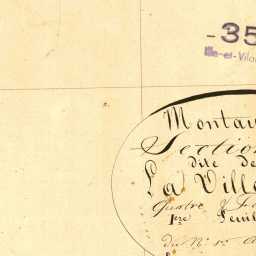 - 35
Ille-et-Vila
Montau
Section
dite de
La Ville
Quatre
1ere Feuil
du N° 1er A